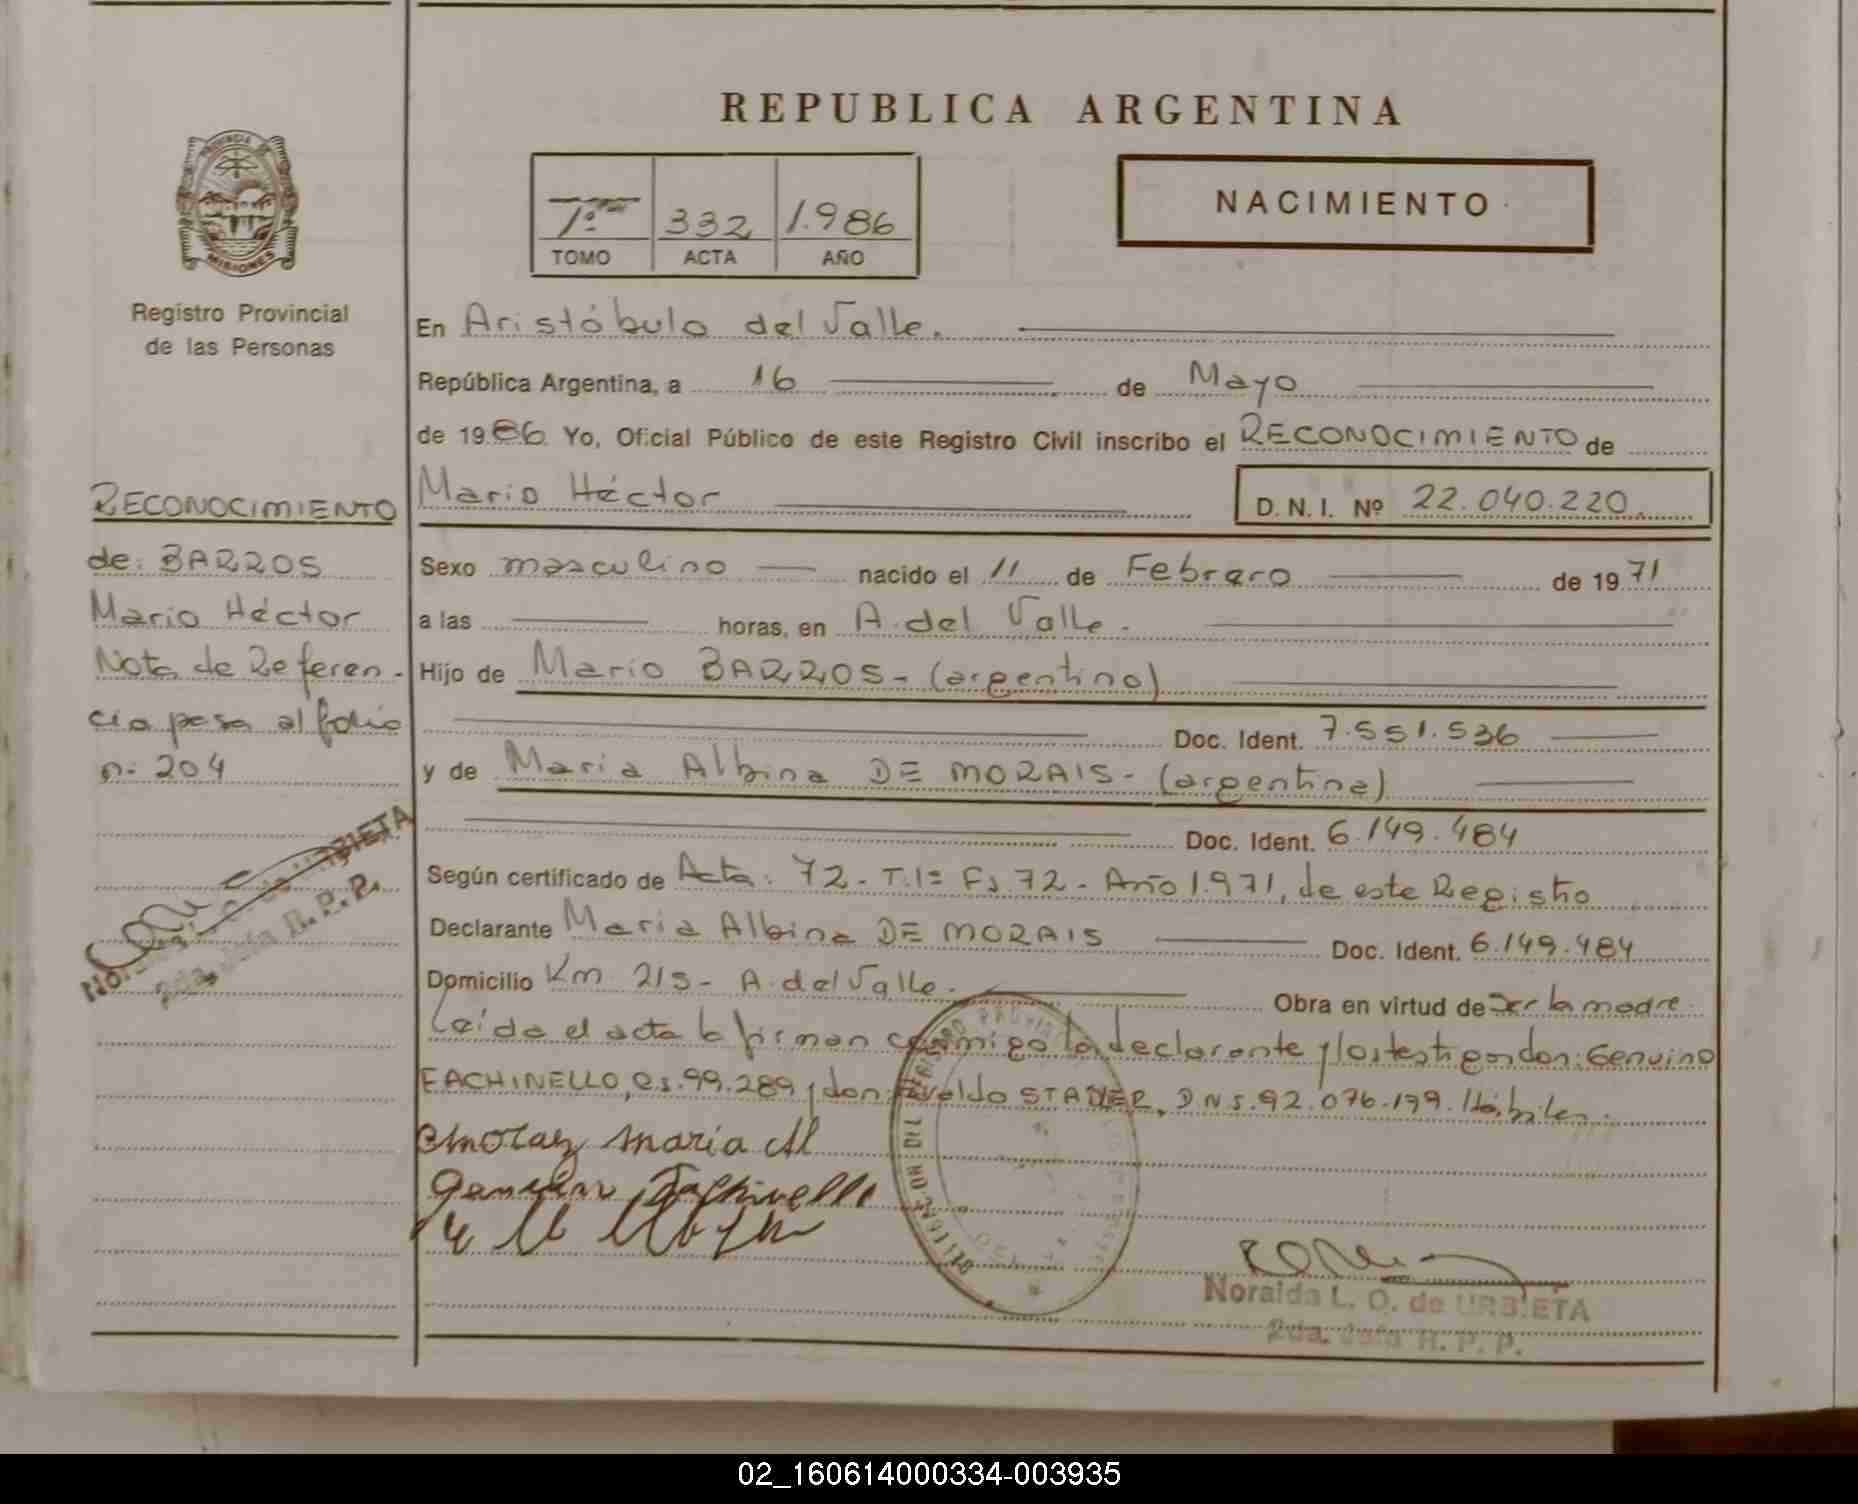 REPUBLICA ARGENTINA
PROVINCIA DE
MISIONES
Registro Provincial
de las Personas
1º 332 1.986
TOMO ACTA AÑO
NACIMIENTO
En Aristóbulo del Valle.
República Argentina, a 16 de Mayo
de 1986 Yo, Oficial Público de este Registro Civil inscribo el RECONOCIMIENTO de
Mario Héctor D.N.I. Nº 22.040.220.
Sexo masculino nacido el 11 de Febrero de 1971
a las horas, en A. del Valle.
Hijo de Mario BARROS - (argentino)
Doc. Ident. 7.551.536
y de Maria Albina DE MORAIS - (argentina)
Doc. Ident. 6.149.484
Según certificado de Acta: 72 - T. 1º Fs. 72 - Año 1.971, de este Registro
Declarante Maria Albina DE MORAIS Doc. Ident. 6.149.484
Domicilio Km 215 - A. del Valle. Obra en virtud de Ser la madre.
Leída el acta la firman conmigo la declarante y los testigos don: Genuino
FACHINELLO, 99.289 y don STADLER, 92.076.199. Hábiles.
RECONOCIMIENTO
de: BARROS
Mario Héctor
Nota de Referen-
cia pasa al folio
nº 204
Maria Al
Fachinello
Noraida L. O. de URBIETA
2da. Jefa R. P. P.
02_160614000334-003935